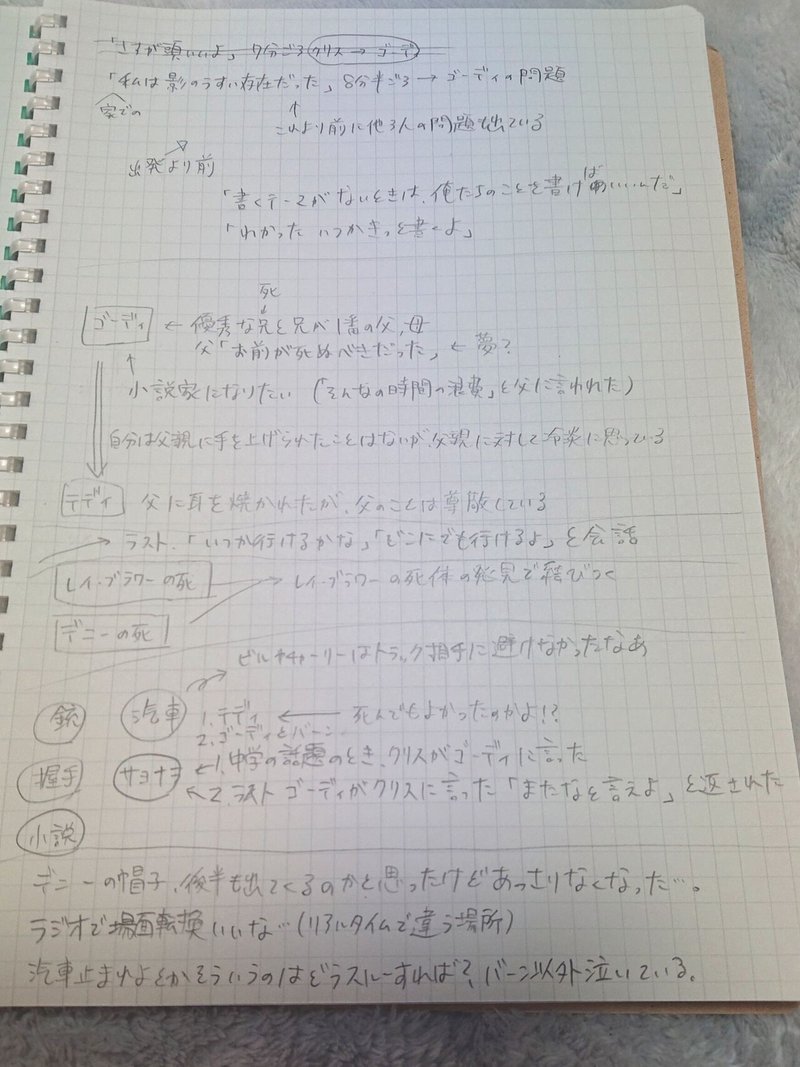 「さすが頭いいよ」7分ごろ クリス→ゴーディ
「私は影のうすい存在だった」8分半ごろ→ゴーディの問題
家での
↑
これより前に他3人の問題も出ている
出発より前
「書くテーマがないときは、俺たちのことを書けばいいんだ」
「わかった いつかきっと書くよ」
死
ゴーディ ← 優秀な兄と兄が1番の父、母
父「お前が死ぬべきだった」← 夢?
↑
小説家になりたい (「そんなの時間の浪費」と父に言われた)
自分は父親に手を上げられたことはないが、父親に対して冷淡に思っている
テディ 父に耳を焼かれたが、父のことは尊敬している
→ ラスト、「いつか行けるかな」「どこにでも行けるよ」と会話
レイ・ブラワーの死 → レイ・ブラワーの死体の発見で結びつく
デニーの死
ビルやチャーリーはトラック相手に避けなかったなあ
銃 汽車 1.テディ ← 死んでもよかったのかよ!?
2.ゴーディとバーン
握手 サヨナラ ←1.中学の話題のとき、クリスがゴーディに言った
←2.ラスト ゴーディがクリスに言った「またなと言えよ」と返された
小説
デニーの帽子、後半も出てくるのかと思ったけどあっさりなくなった…。
ラジオで場面転換いいな…(リアルタイムで違う場所)
汽車止まれよとかそういうのはどうスルーすれば?、バーン以外泣いている。